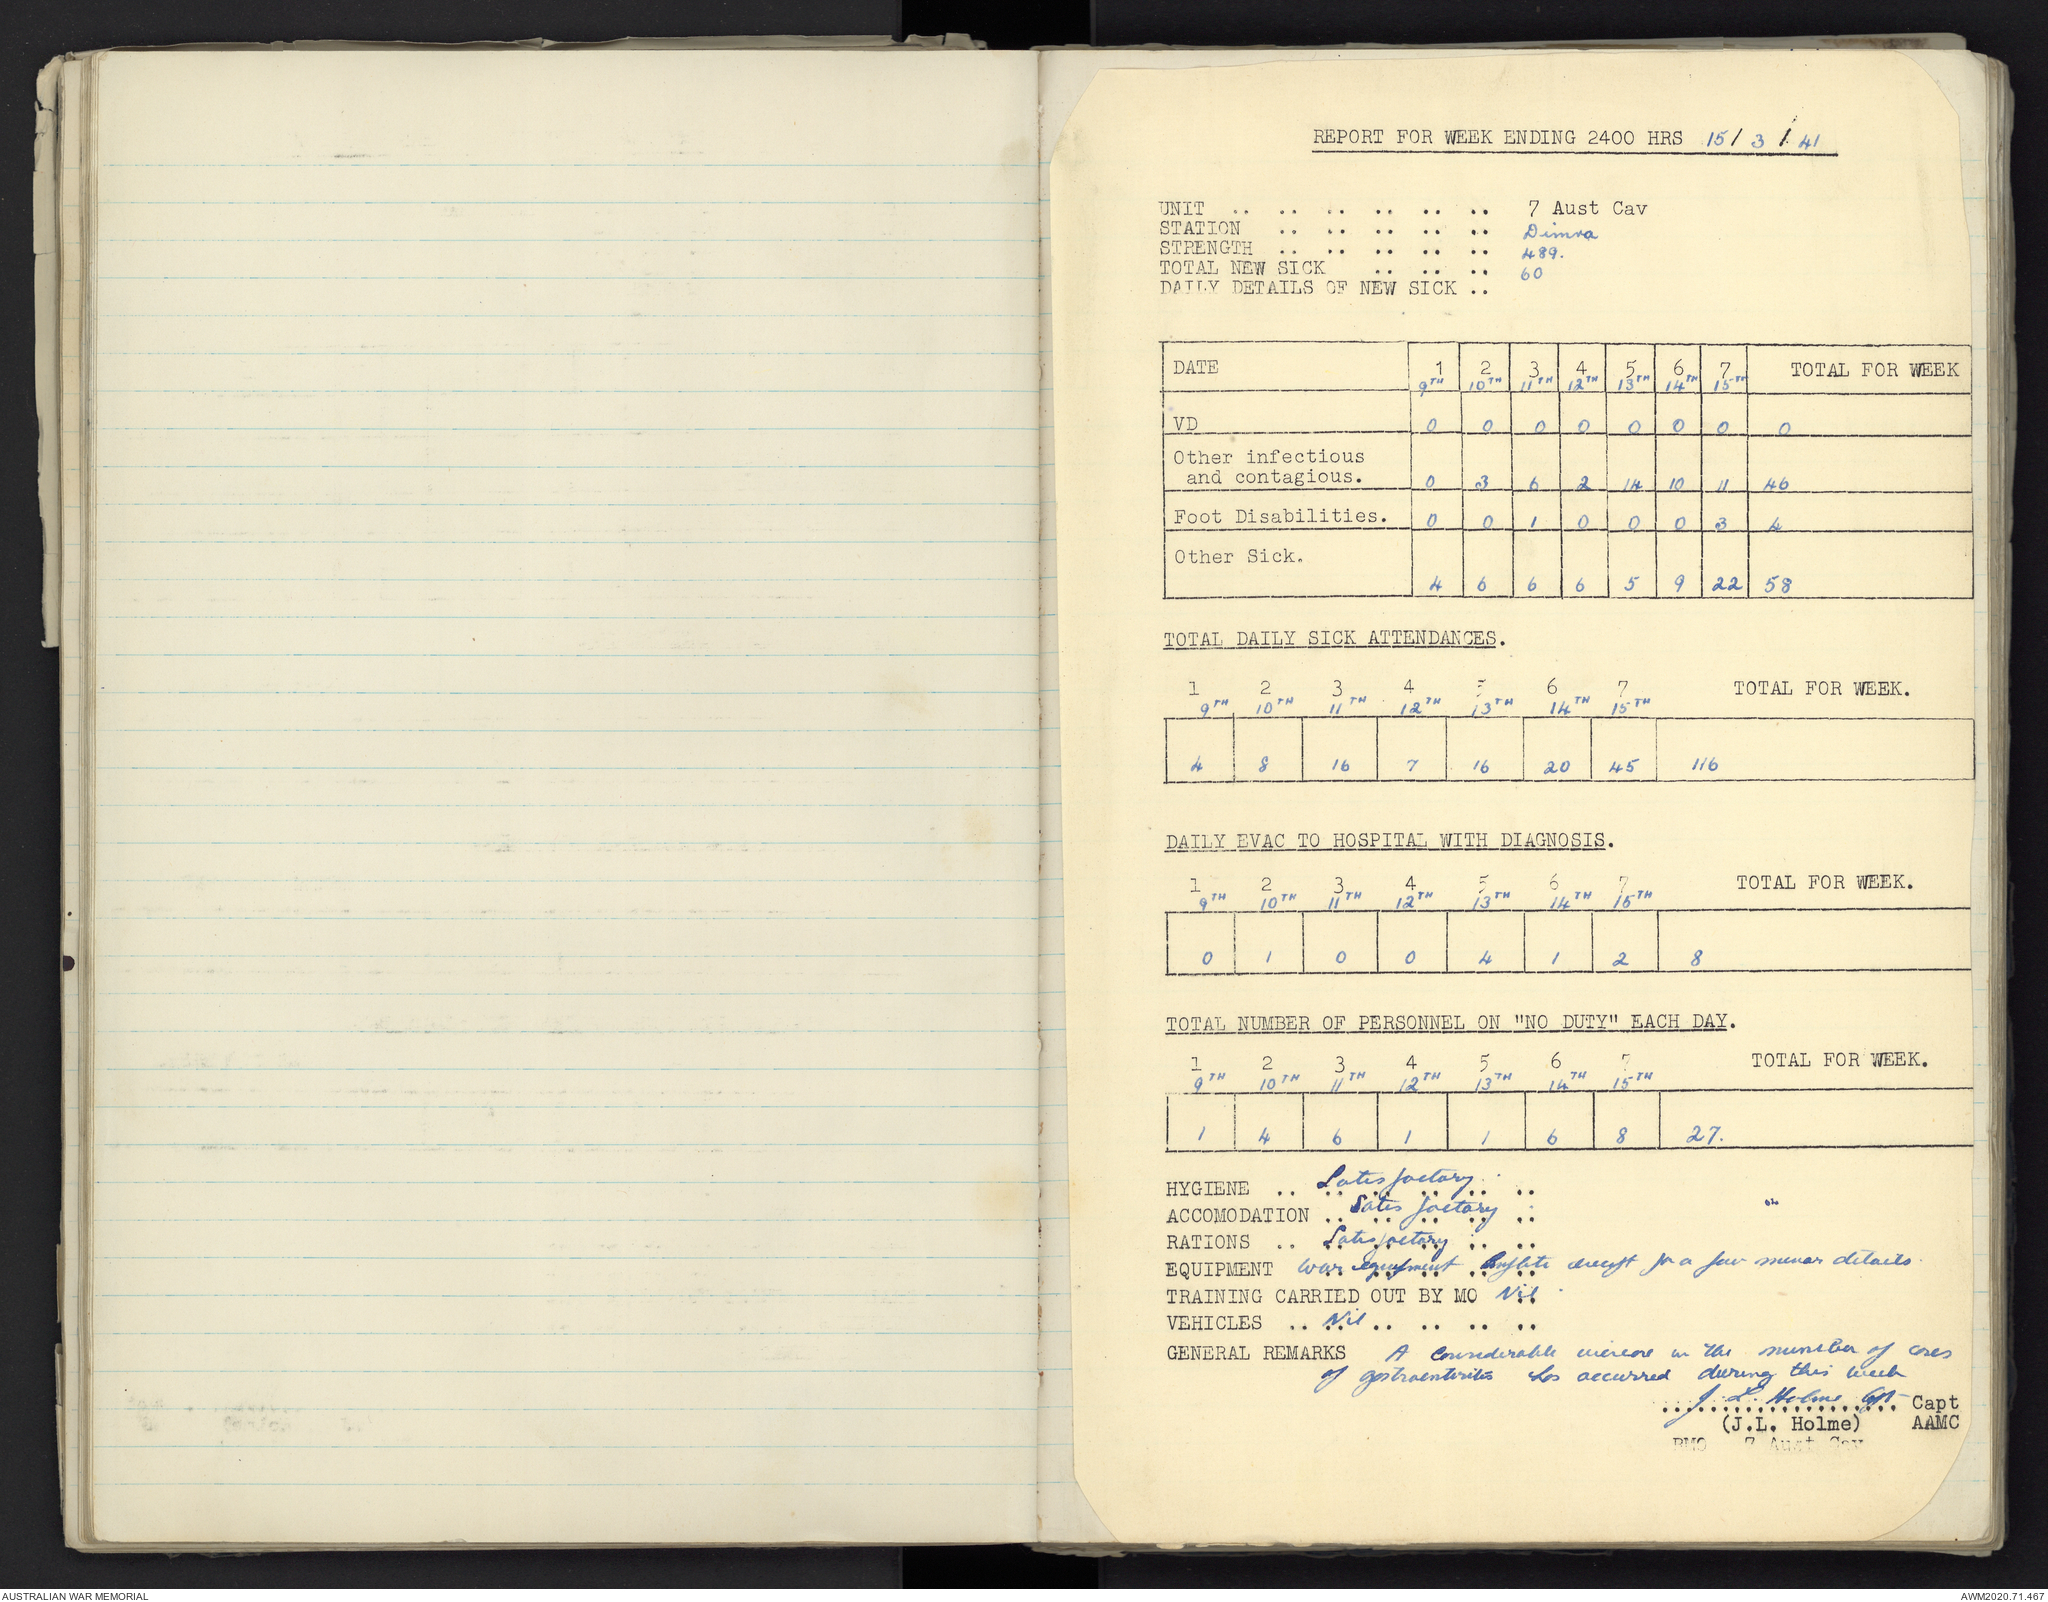 REPORT FOR WEEK ENDING 2400 HRS 15/ 3 / 41
UNIT .. .. .. .. .. .. 7 Aust Cav
STATION .. .. .. .. .. Dimra
STRENGTH .. .. .. .. .. 489.
TOTAL NEW SICK .. .. .. 60
DAILY DETAILS OF NEW SICK ..
DATE 1 2 3 4 5 6 7 TOTAL FOR WEEK
9TH 10TH 11TH 12TH 13TH 14TH 15TH
VD 0 0 0 0 0 0 0 0
Other infectious
and contagious. 0 3 6 2 14 10 11 46
Foot Disabilities. 0 0 1 0 0 0 3 4
Other Sick.
4 6 6 6 5 9 22 58
TOTAL DAILY SICK ATTENDANCES.
1 2 3 4 5 6 7 TOTAL FOR WEEK.
9TH 10TH 11TH 12TH 13TH 14TH 15TH
4 8 16 7 16 20 45 116
DAILY EVAC TO HOSPITAL WITH DIAGNOSIS.
1 2 3 4 5 6 7 TOTAL FOR WEEK.
9TH 10TH 11TH 12TH 13TH 14TH 15TH
0 1 0 0 4 1 2 8
TOTAL NUMBER OF PERSONNEL ON "NO DUTY" EACH DAY.
1 2 3 4 5 6 7 TOTAL FOR WEEK.
9TH 10TH 11TH 12TH 13TH 14TH 15TH
1 4 6 1 1 6 8 27.
HYGIENE .. Satisfactory .. ..
ACCOMODATION .. Satisfactory ..
RATIONS .. Satisfactory .. ..
EQUIPMENT War equipment complete except for a few minor details.
TRAINING CARRIED OUT BY MO Nil.
VEHICLES .. Nil .. .. .. ..
GENERAL REMARKS A considerable increase in the number of cases
of gastroenteritis has occurred during this week
J. L. Holme Capt Capt
(J.L. Holme) AAMC
RMO 7 Aust Cav
AUSTRALIAN WAR MEMORIAL
AWM2020.71.467